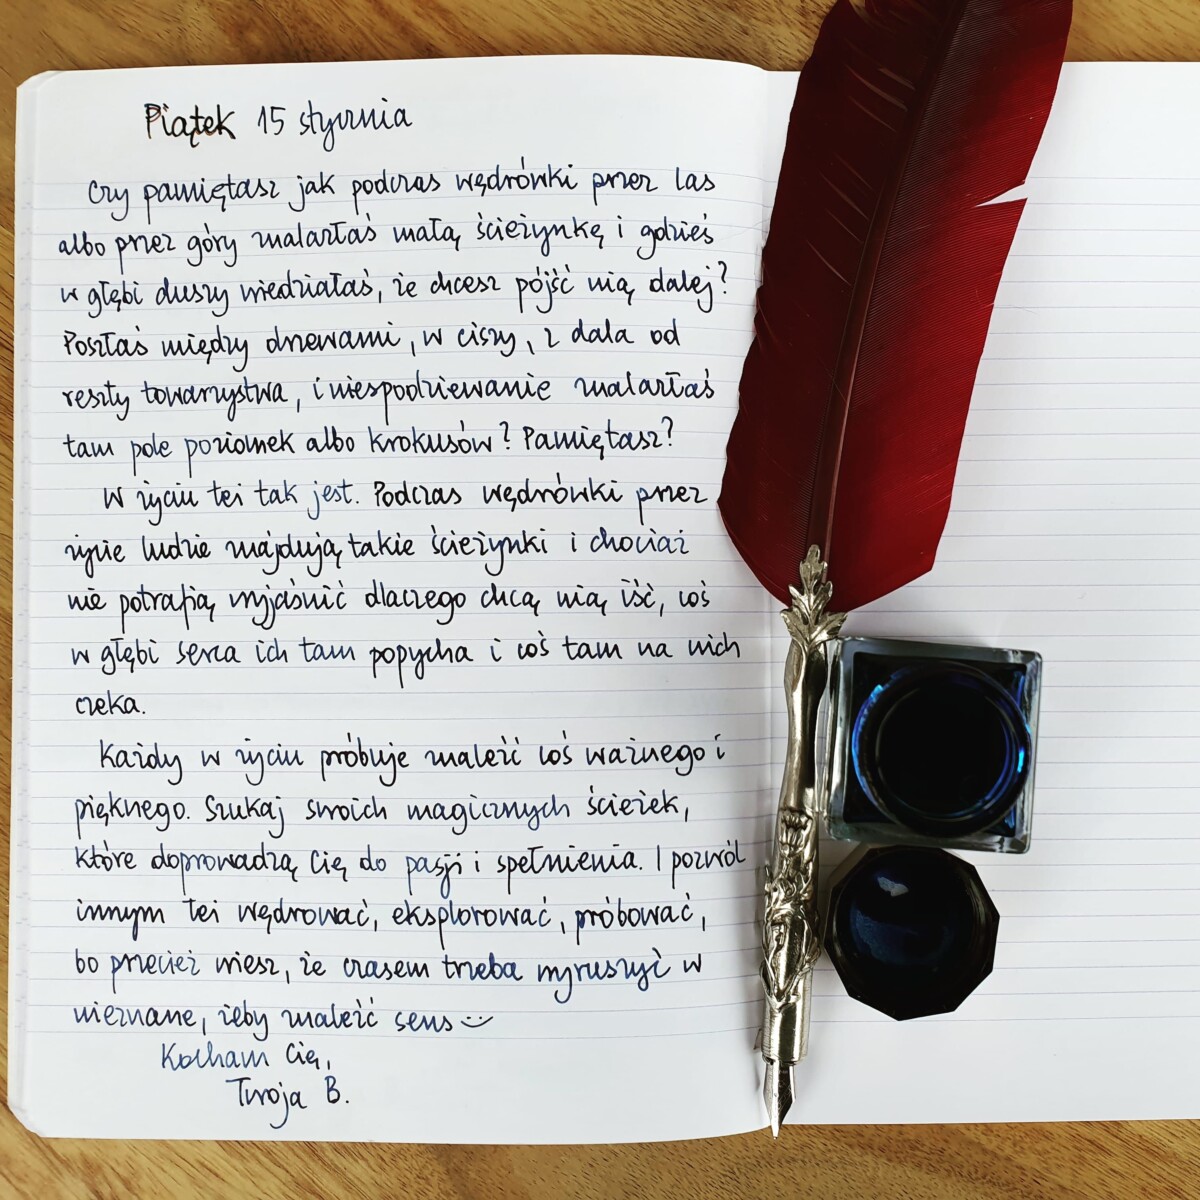 Piątek 15 stycznia
Czy pamiętasz jak podczas wędrówki przez las
albo przez góry znalazłaś małą ścieżynkę i gdzieś
w głębi duszy wiedziałaś, że chcesz pójść nią dalej?
Poszłaś między drzewami, w ciszy, z dala od
reszty towarzystwa, i niespodziewanie znalazłaś
tam pole poziomek albo krokusów? Pamiętasz?
W życiu też tak jest. Podczas wędrówki przez
życie ludzie znajdują takie ścieżynki i chociaż
nie potrafią wyjaśnić dlaczego chcą nią iść, coś
w głębi serca ich tam popycha i coś tam na nich
czeka.
Każdy w życiu próbuje znaleźć coś ważnego i
pięknego. Szukaj swoich magicznych ścieżek,
które doprowadzą Cię do pasji i spełnienia. I pozwól
innym też wędrować, eksplorować, próbować,
bo przecież wiesz, że czasem trzeba wyruszyć w
nieznane, żeby znaleźć sens :)
Kocham Cię,
Twoja B.